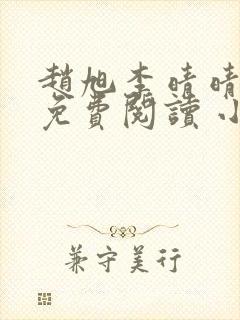 趙旭李晴晴
免費閱讀小
兼守美行